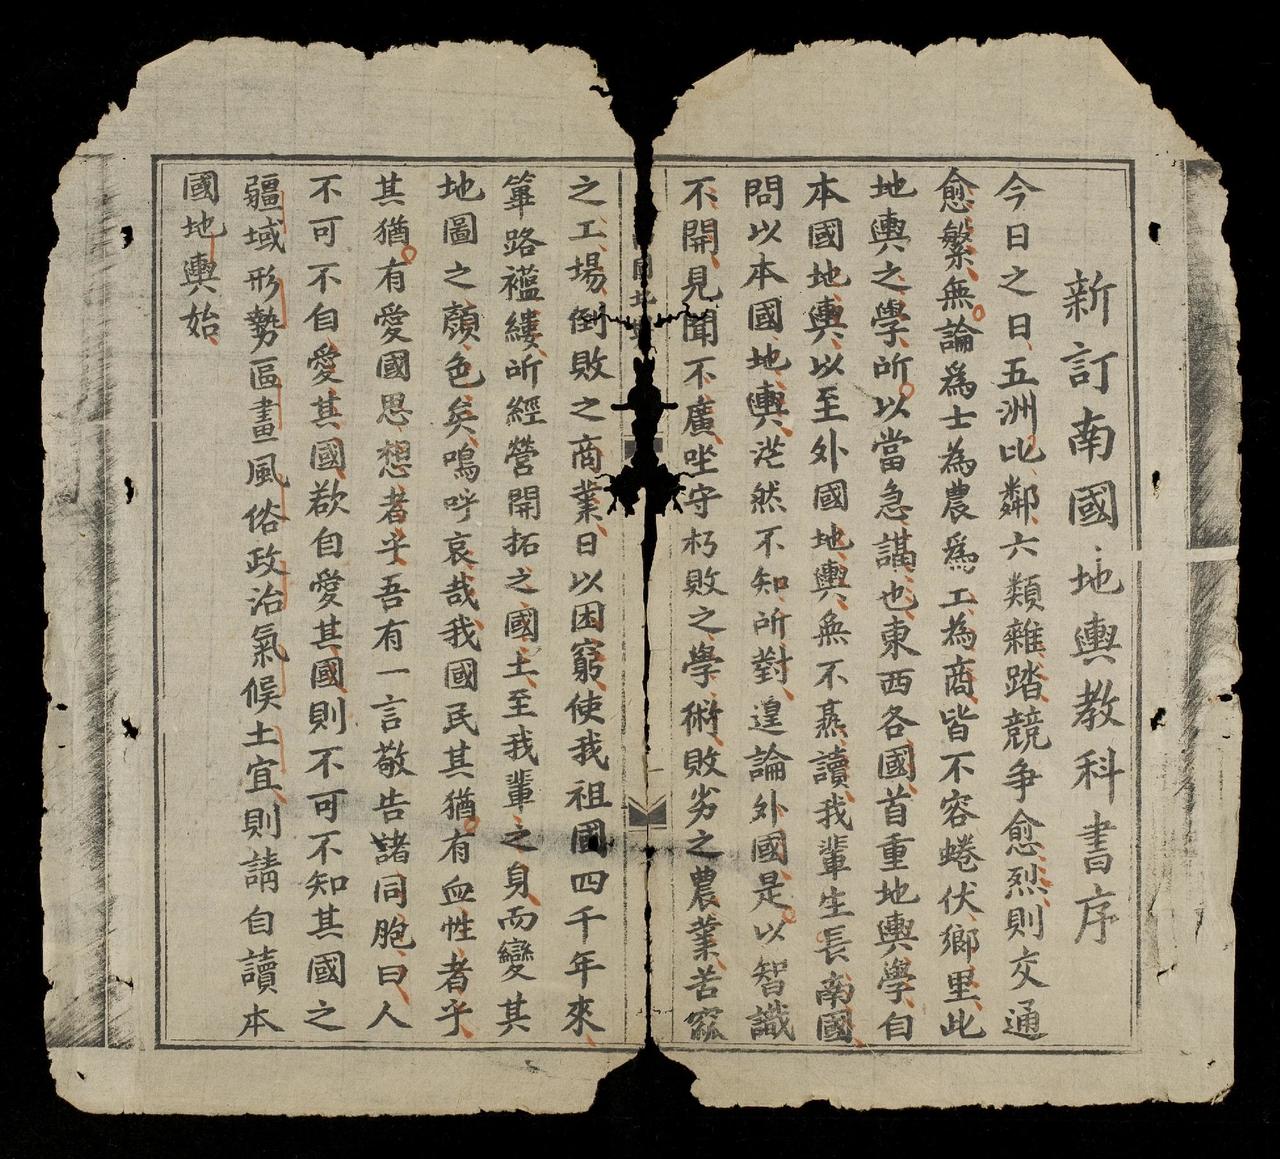 新訂南國地輿教科書序
今日之日五洲比鄰六類雜踏競爭愈烈則交通
愈繁無論為士為農為工為商皆不容蜷伏鄉里此
地輿之學所以當急講也東西各國首重地輿學自
本國地輿以至外國地輿無不熟讀我輩生長南國
問以本國地輿茫然不知所對遑論外國是以智識
不開見聞不廣坐守朽敗之學術敗劣之農業苦窳
之工場倒敗之商業日以困窮使我祖國四千年來
篳路襤縷所經營開拓之國土至我輩之身而變其
地圖之顏色矣嗚呼哀哉我國民其猶有血性者乎
其猶有愛國思想者乎吾有一言敬告諸同胞曰人
不可不自愛其國欲自愛其國則不可不知其國之
疆域形勢區畫風俗政治氣候土宜則請自讀本
國地輿始